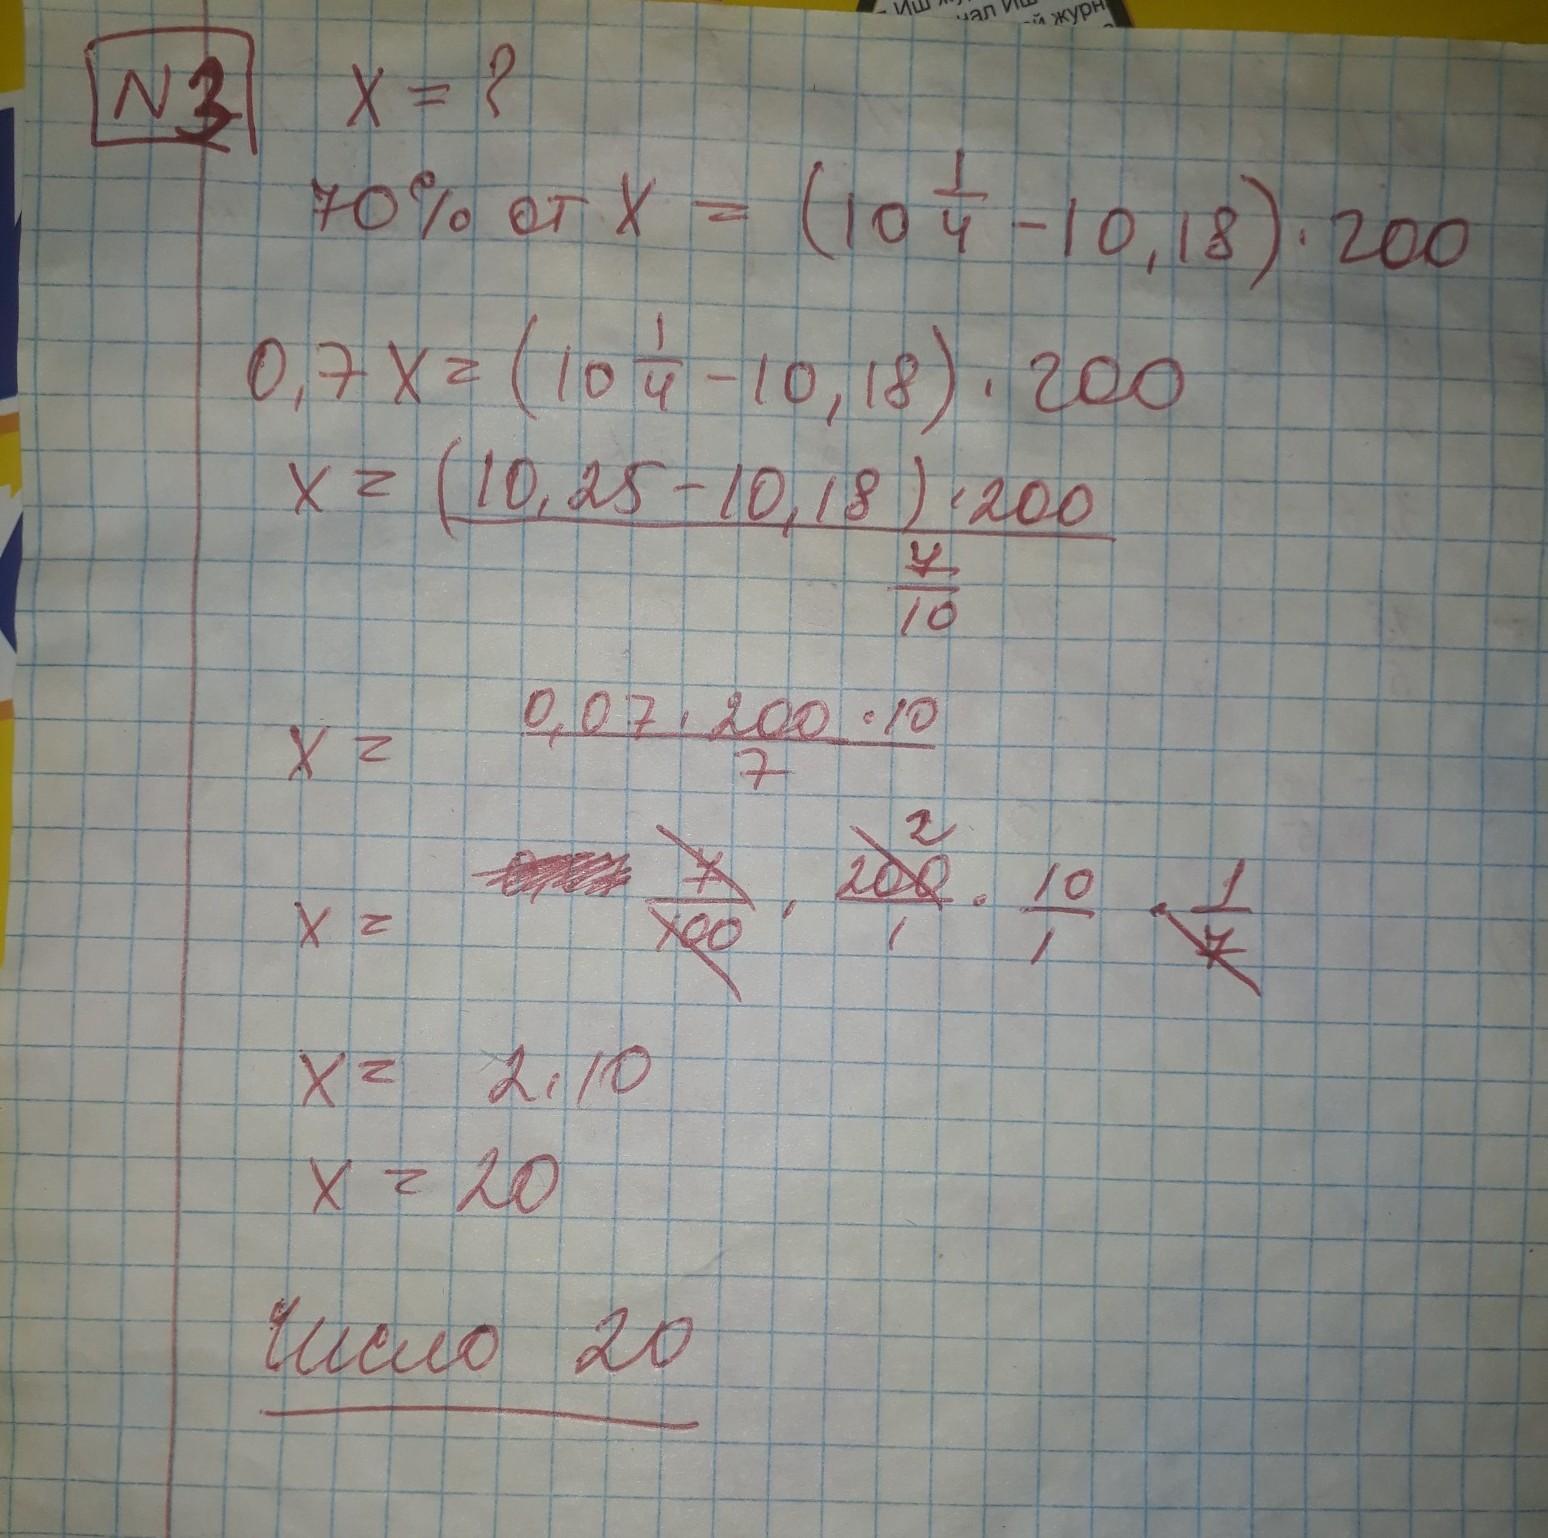 - Иш жу
нал Иш
й журн
N3 X = ?
70% от X = (10 1/4 - 10,18) · 200
0,7 X = (10 1/4 - 10,18) · 200
X = (10,25 - 10,18) · 200
7/10
X = 0,07 · 200 · 10
7
X = 7/100 · 200/1 · 10/1 · 1/7
2
X = 2 · 10
X = 20
Число 20